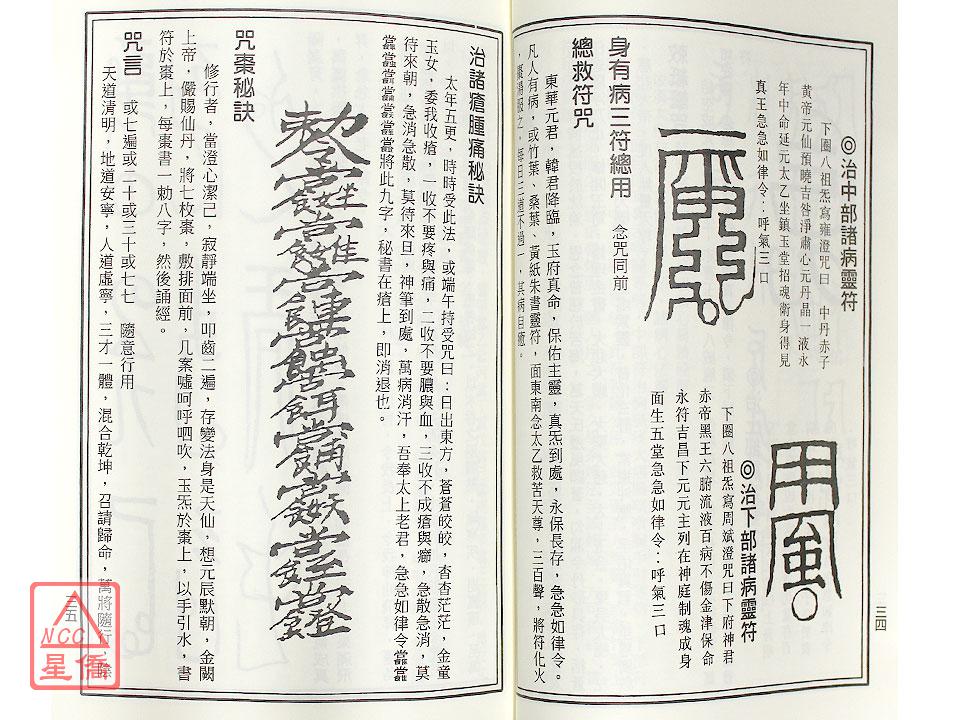 ◎治中部諸病靈符
下圈八祖炁寫雍澄咒曰　中丹赤子
黄帝元仙預曉吉咎淨肅心元丹晶一液永
年中命延元太乙坐鎮玉堂招魂衛身得見
真王急急如律令：呼氣三口
◎治下部諸病靈符
下圈八祖炁寫周斌澄咒曰下府神君
赤帝黑王六腑流液百病不傷金津保命
永符吉昌下元元主列在神庭制魂成身
面生五堂急急如律令：呼氣三口
身有病三符總用　念咒同前
總救符咒
東華元君，韓君降臨，玉府真命，保佑主靈，真炁到處，永保長存，急急如律令。
凡人有病，或竹葉、桑葉、黃紙朱書靈符，面東南念太乙救苦天尊，三百聲，將符化火
每日三道不過一，其病自癒。
三四
治諸瘡腫痛秘訣
太年五更，時時受此法，或端午持受咒曰：日出東方，蒼蒼皎皎，杳杳茫茫，金童
玉女，委我收瘡，一收不要疼與痛，二收不要膿與血，三收不成瘡與癤，急散急消，莫
待來朝，急消急散，莫待來旦，神筆到處，萬病消汗，吾奉太上老君，急急如律令
將此九字，秘書在瘡上，即消退也。
咒棗秘訣
修行者，當澄心潔己，寂靜端坐，叩齒二遍，存變法身是天仙，想元辰默朝，金闕
上帝，儼賜仙丹，將七枚棗，敷排面前，几案噓呵呼呬吹，玉炁於棗上，以手引水，書
符於棗上，每棗書一勅八字，然後誦經。
咒言　或七遍或二十或三十或七七　隨意行用
天道清明，地道安寧，人道虛寧，三才一體，混合乾坤，召請歸命，萬將隨行，陰
三五
NCC
星僑